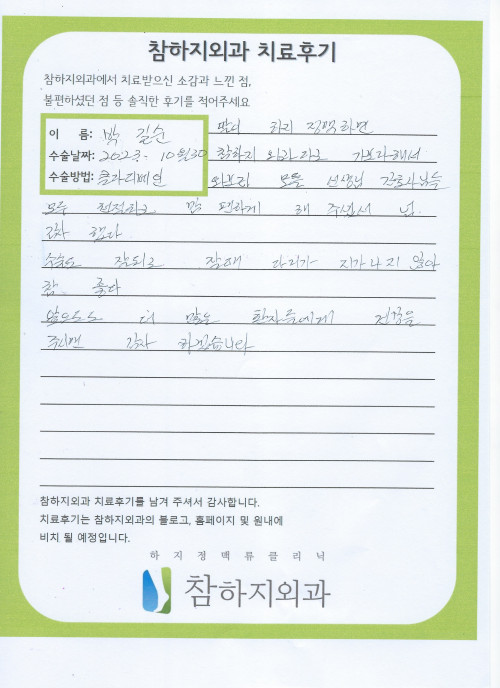 참하지외과 치료후기
참하지외과에서 치료받으신 소감과 느낀 점,
불편하셨던 점 등 솔직한 후기를 적어주세요
이 름: 박 길순
수술날짜: 2023. 10월30
수술방법: 클라리베인
하지 정맥하면
참하지 외과라고 가보라해서
와보니 모든 선생님 간호사님들
모두 친절하고 맘 편하게 해 주셔서 넘
감사 했다
수술도 잘되고 잘해 다리가 지가나지 않아
참 좋다
앞으로도 더 많은 환자들에게 건강을
주시면 감사 하겠습니다
참하지외과 치료후기를 남겨 주셔서 감사합니다.
치료후기는 참하지외과의 블로그, 홈페이지 및 원내에
비치 될 예정입니다.
하지정맥류클리닉
참하지외과